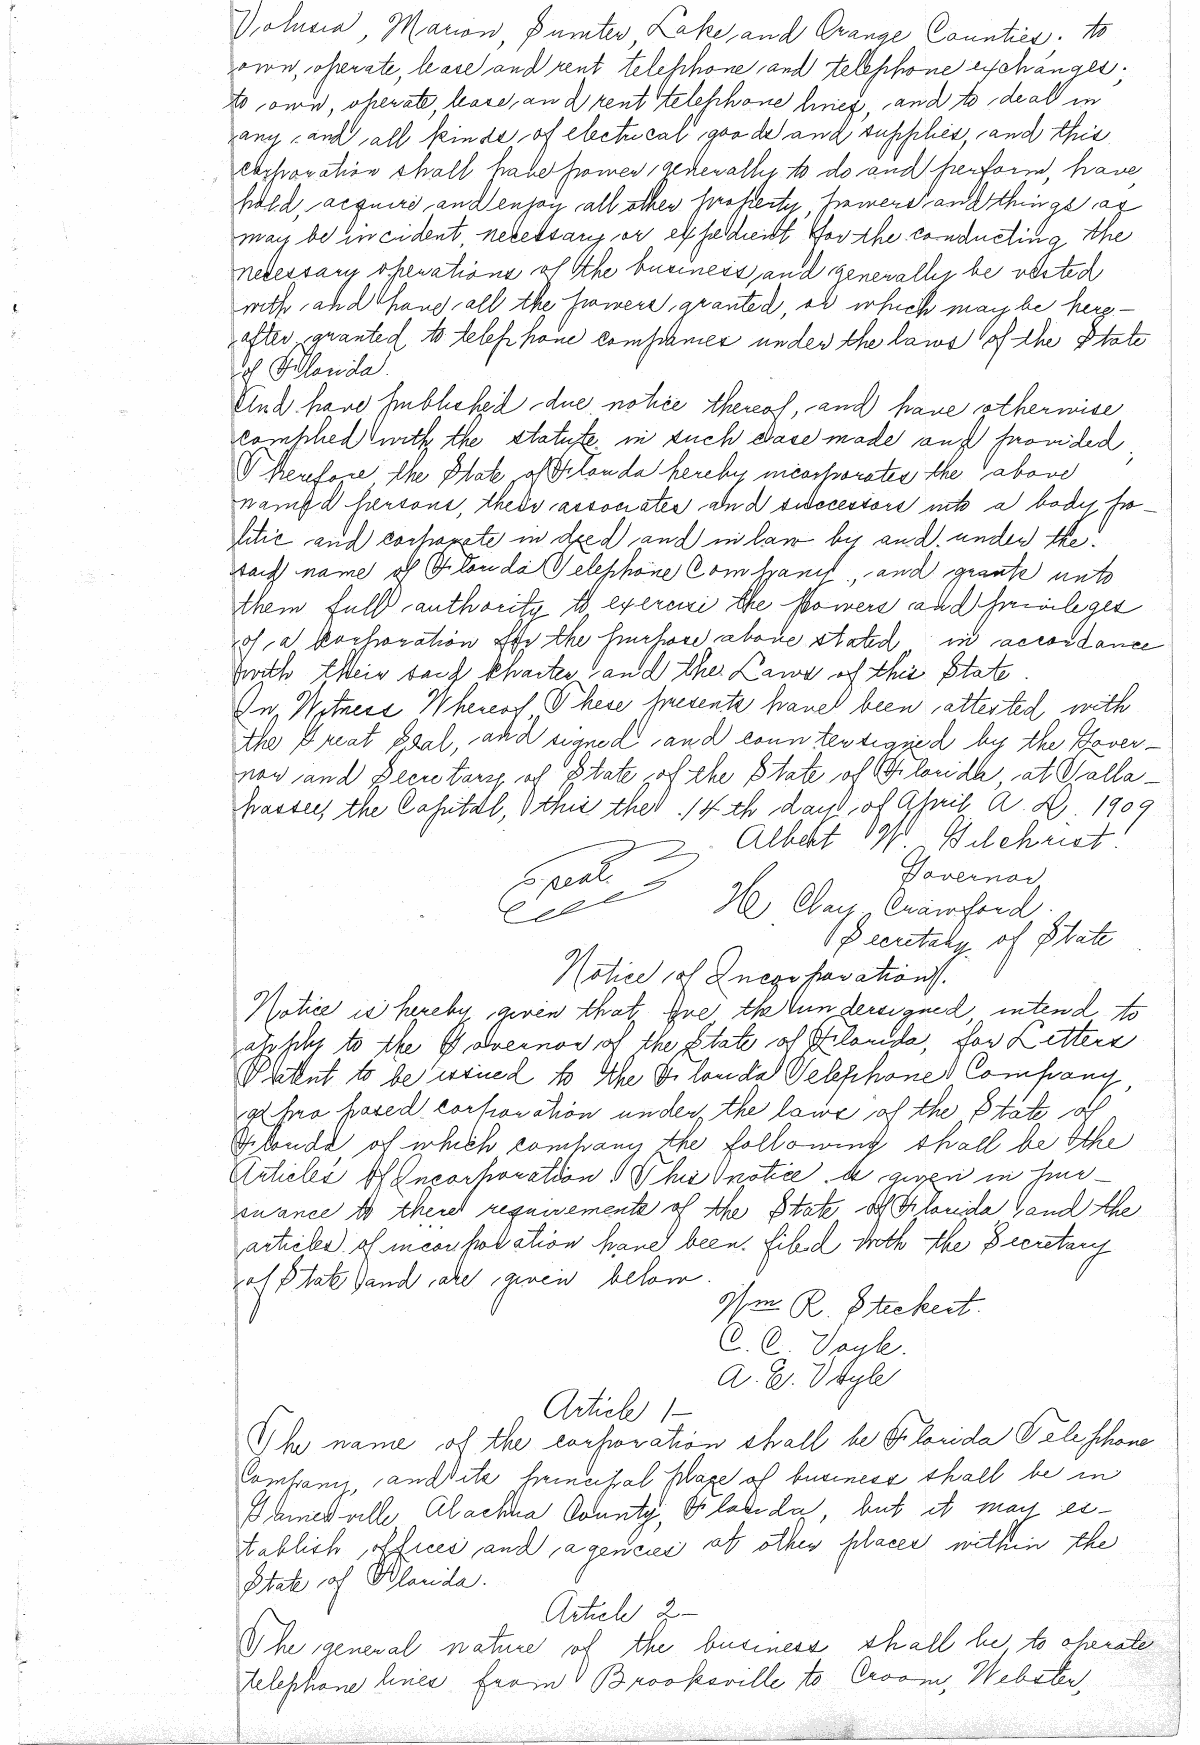 Volusia, Marion, Sumter, Lake, and Orange Counties; to
own, operate, lease and rent telephone and telephone exchanges;
to own, operate, lease, and rent telephone lines, and to deal in
any and all kinds of electrical goods and supplies, and this
corporation shall have power generally to do and perform, have,
hold, acquire and enjoy all other property, powers and things as
may be incident, necessary or expedient for the conducting the
necessary operations of the business, and generally be vested
with and have all the powers granted, or which may be here-
after granted to telephone companies under the laws of the State
of Florida.
And have published due notice thereof, and have otherwise
complied with the statute in such case made and provided;
Therefore the State of Florida hereby incorporates the above
named persons, their associates and successors into a body po-
litic and corporate in deed and in law by and under the
said name of Florida Telephone Company, and grants unto
them full authority to exercise the powers and privileges
of a corporation for the purpose above stated in accordance
with their said charter and the Laws of this State.
In Witness Whereof, These presents have been attested with
the Great Seal, and signed and countersigned by the Gover-
nor and Secretary of State of the State of Florida, at Talla-
hassee, the Capital, this the 14th day of April A. D. 1909
Albert W. Gilchrist.
Governor
Seal.
H. Clay Crawford.
Secretary of State
Notice of Incorporation.
Notice is hereby given that we, the undersigned, intend to
apply to the Governor of the State of Florida, for Letters
Patent to be issued to the Florida Telephone Company,
a proposed corporation under the laws of the State of
Florida, of which company the following shall be the
Articles of Incorporation. This notice is given in pur-
suance to there requirements of the State of Florida, and the
articles of incorporation have been filed with the Secretary
of State and are given below.
Wm R. Steckert.
C. C. Voyle.
A. E. Voyle
Article 1-
The name of the corporation shall be Florida Telephone
Company, and its principal place of business shall be in
Gainesville, Alachua County, Florida, but it may es-
tablish offices and agencies at other places within the
State of Florida.
Article 2-
The general nature of the business shall be, to operate
telephone lines from Brooksville to Croom, Webster,